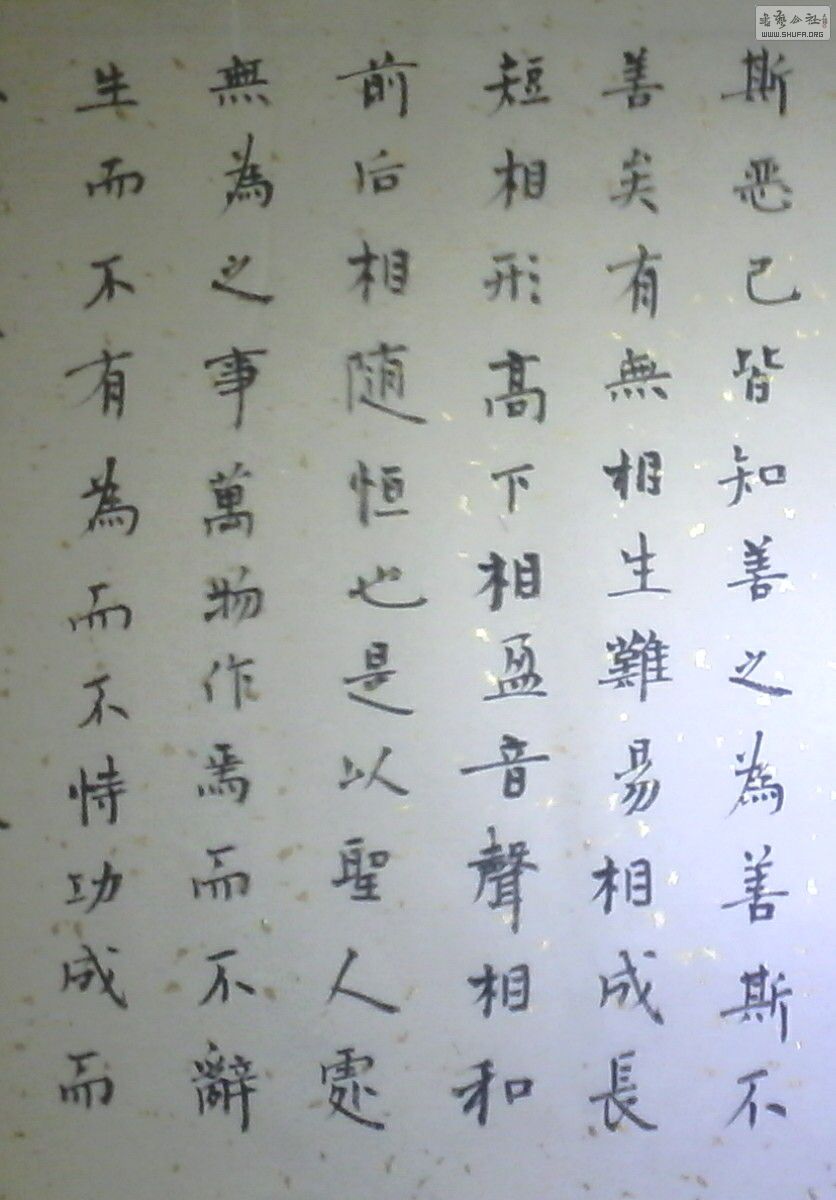 斯恶已皆知善之為善斯不
善矣有無相生難易相成長
短相形高下相盈音聲相和
前后相随恒也是以聖人處
無為之事萬物作焉而不辭
生而不有為而不恃功成而
WWW.SHUFA.ORG